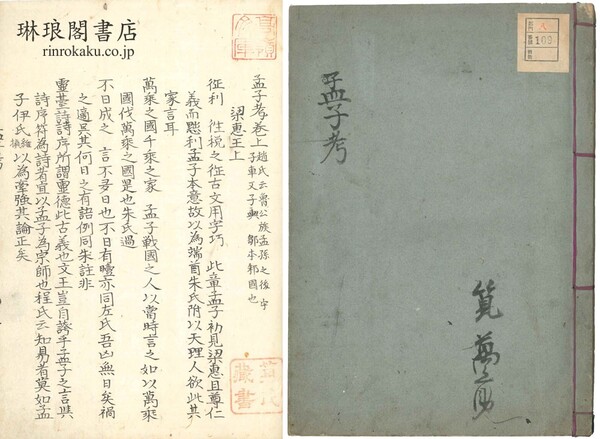 琳琅閣書店
rinrokaku.co.jp
孟子考卷上 趙氏云魯公族孟孫之後字
子車又子輿 鄒本邾國也
梁惠王上
征利 征稅之征古文用字巧 此章孟子初見梁惠且尊仁
義而賤利孟子本意故以為端首朱氏附以天理人欲此其
家言耳
萬乘之國千乘之家 孟子戰國之人以當時言之如以萬乘
國伐萬乘之國是也朱氏過
不日成之 言不多日也不日有曀亦同左氏吾凶無日矣禍
之適吳其何日之有諸例同朱註非
靈臺詩 詩序所謂靈德此古義也文王豈自誇乎孟子之言與
詩序符為詩者宜以孟子為宗師也程氏云知易者莫如孟
子伊氏 以為牽強其論正矣
藏書
孟子考
109